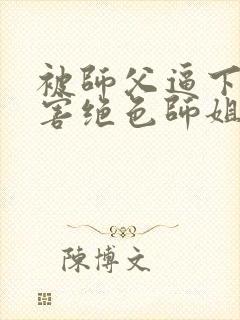 被師父逼下
害绝色師姐
陳博文